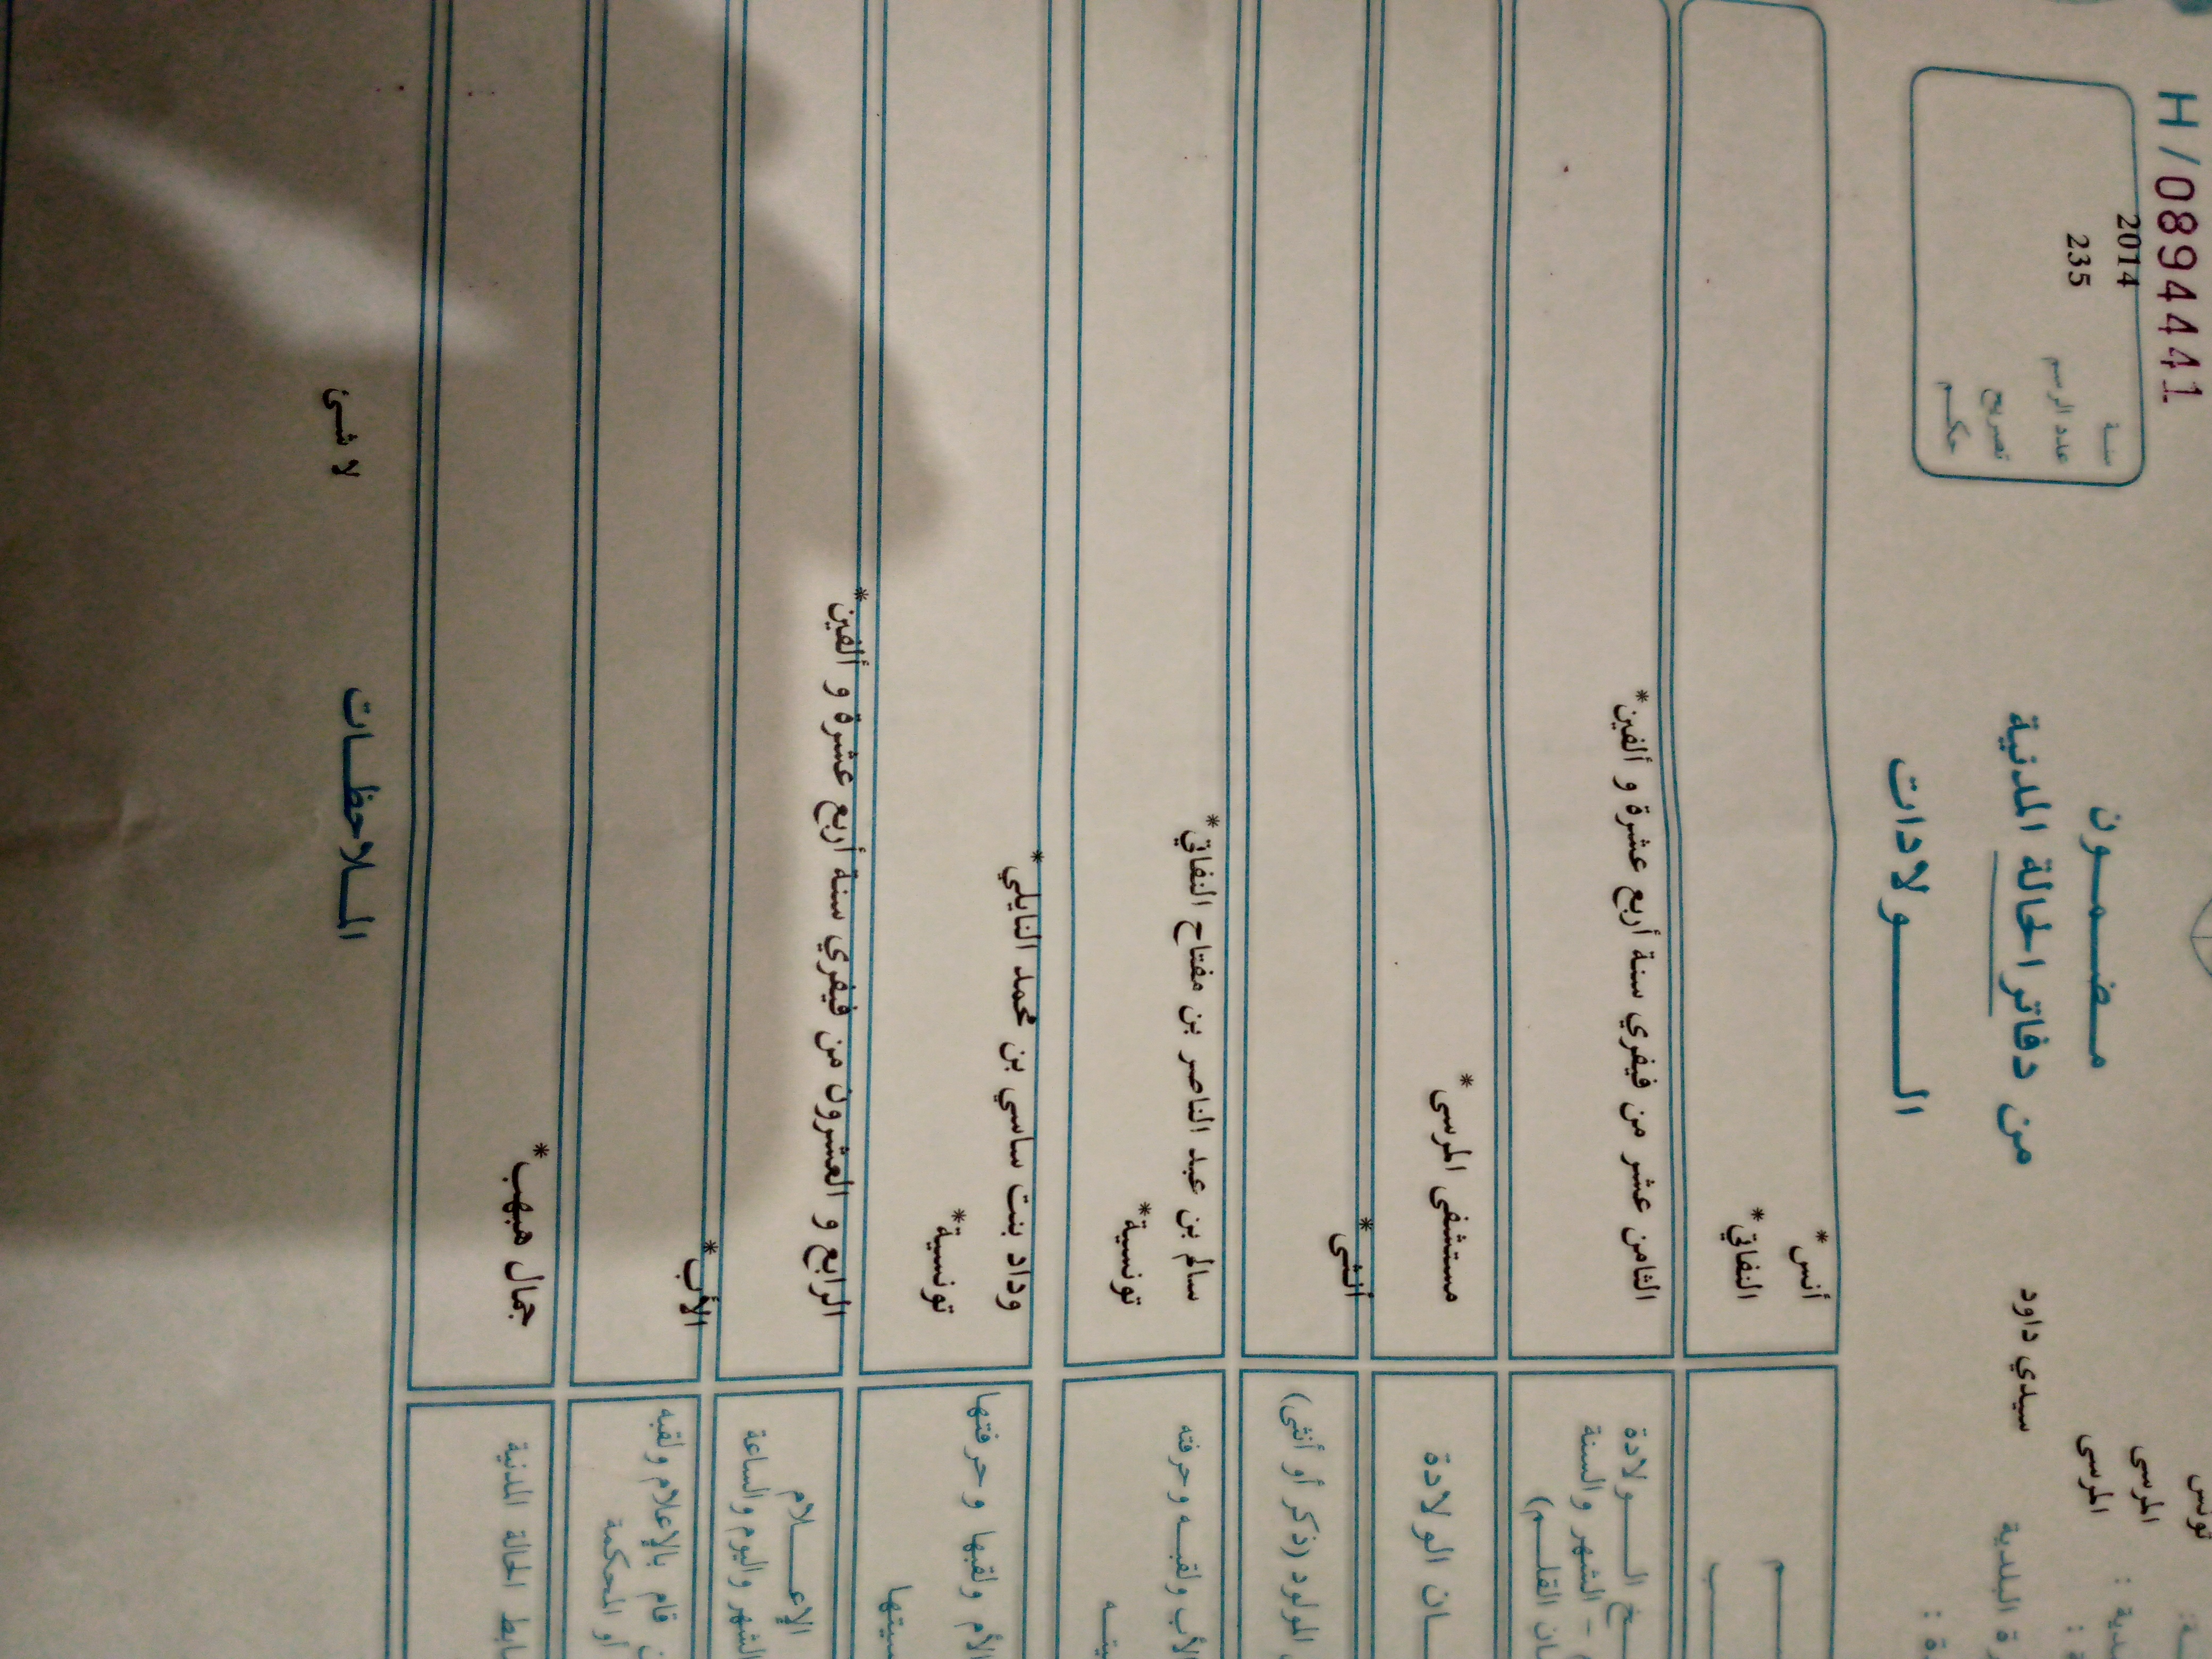 H/0894441
تونس
المرسى
المرسى
سيدي داود
سنة 2014
عدد الرسم 235
تصريح
حكم
مضمون
من دفاتر الحالة المدنية
الولادات
أنس*
النفاتي*
الولادة
الشهر والسنة
الثامن عشر من فيفري سنة أربع عشرة و ألفين*
الولادة
مستشفى المرسى*
المولود (ذكر أو أنثى)
أنثى*
الأب ولقبه وحرفته
سالم بن عبد الناصر بن مفتاح النفاتي*
تونسية*
الأم ولقبها وحرفتها
وداد بنت ساسي بن محمد النايلي*
تونسية*
الإعلام
الشهر واليوم والساعة
الرابع و العشرون من فيفري سنة أربع عشرة و ألفين*
قام بالإعلام ولقبه
أو المحكمة
الأب*
الحالة المدنية
جمال هبهب*
الملاحظات
لا شئ